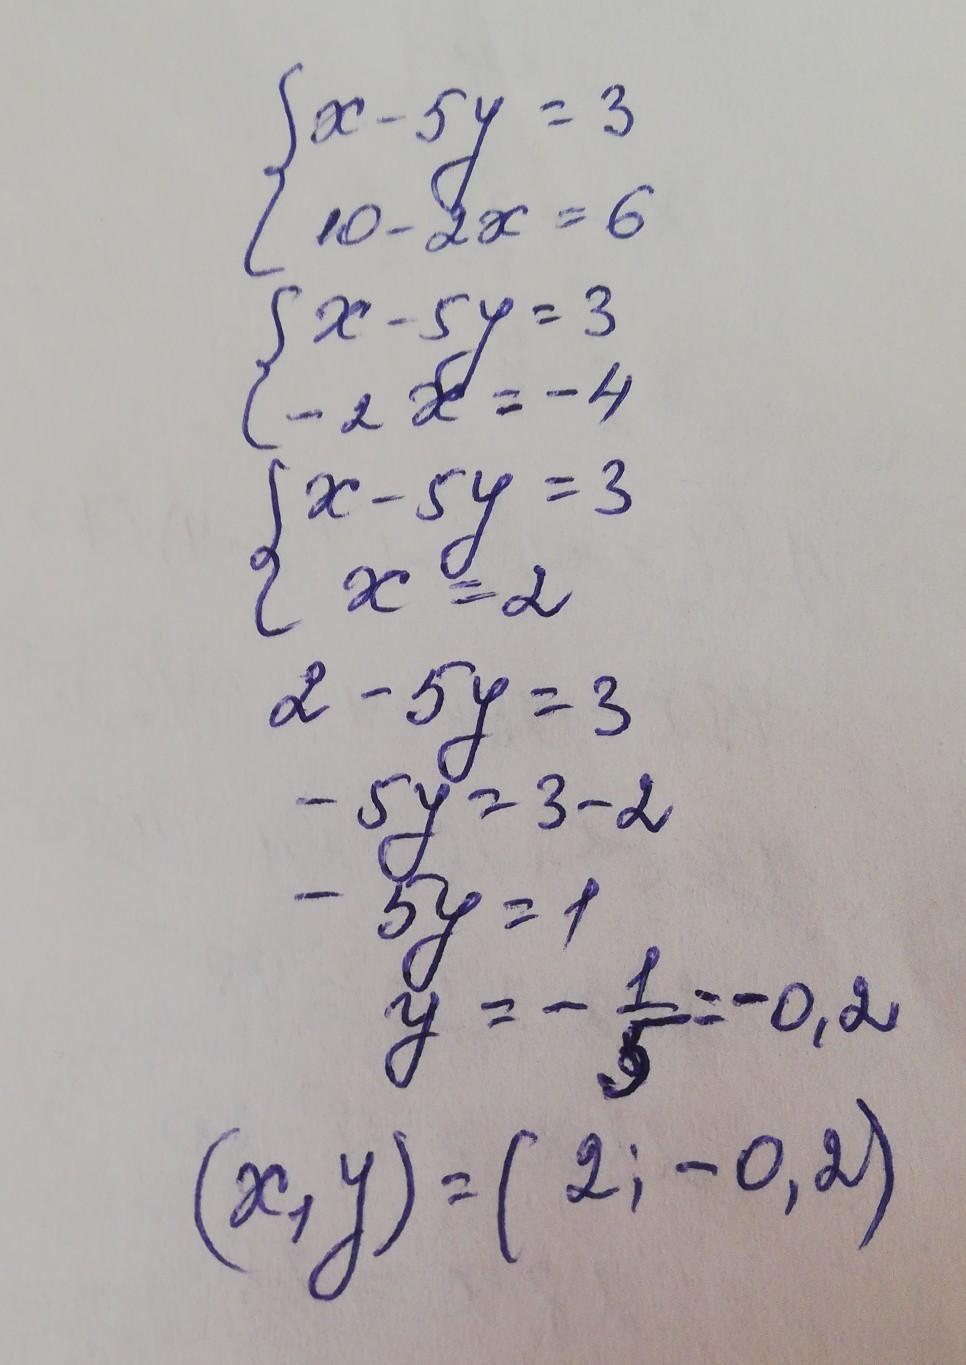 { x - 5y = 3
10 - 2x = 6
{ x - 5y = 3
- 2 x = - 4
{ x - 5y = 3
x = 2
2 - 5y = 3
- 5y = 3 - 2
- 5y = 1
y = - 1/5 = -0,2
(x, y) = ( 2; -0,2)